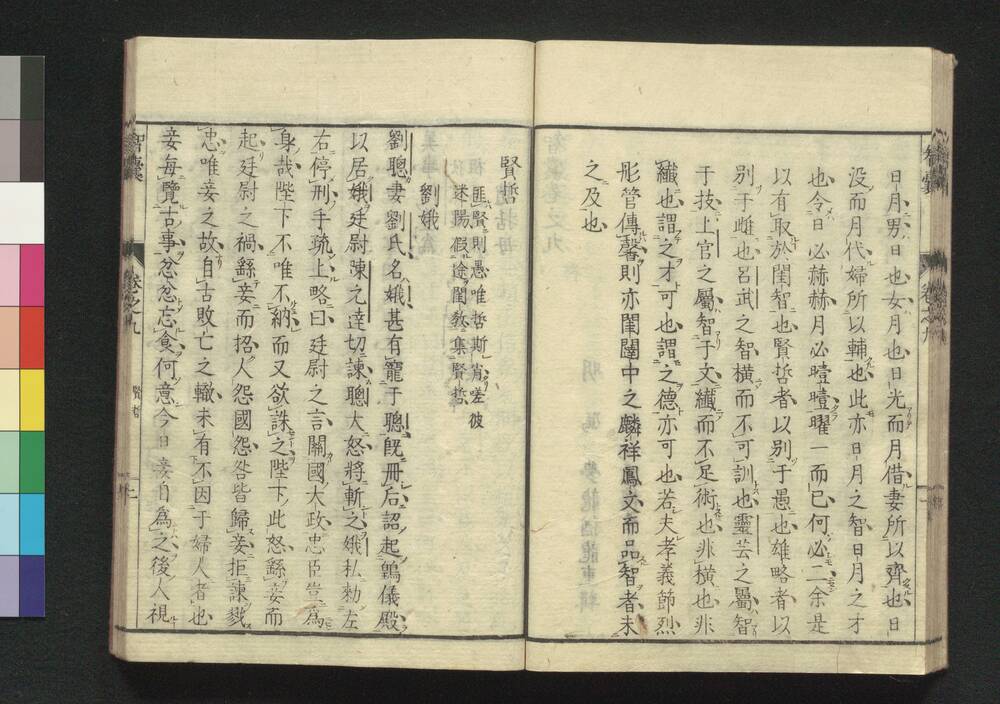 日月男日也女月也日光而月借妻所以齊也日
没而月代婦所以輔也此亦日月之智日月之才
也令日必赫赫月必曀曀曜一而已何必二余是
以有取於閨智也賢哲者以別于愚也雄略者以
別于雌也呂武之智橫而不可訓也靈芸之屬智
于技上官之屬智于文纖而不足術也非橫也非
纖也謂之才可也謂之德亦可也若夫孝義節烈
彤管傳馨則亦閨闥中之麟祥鳳文而品智者未
之及也
賢哲
匪賢則愚唯哲斯尚嗟彼
迷陽假途閨教集賢哲
劉娥
劉聰妻劉氏名娥甚有寵于聰既冊后詔起䳨儀殿
以居娥廷尉陳元達切諫聰大怒將斬之娥私勅左
右停刑手疏上略曰廷尉之言關國大政忠臣豈為
身哉陛下不唯不納而又欲誅之陛下此怒繇妾而
起廷尉之禍繇妾而招人怨國怨咎皆歸妾拒諫戮
忠唯妾之故自古敗亡之轍未有不因于婦人者也
妾每覽古事忿忿忘食何意今日妾自為之後人視
智囊
卷之九
賢哲